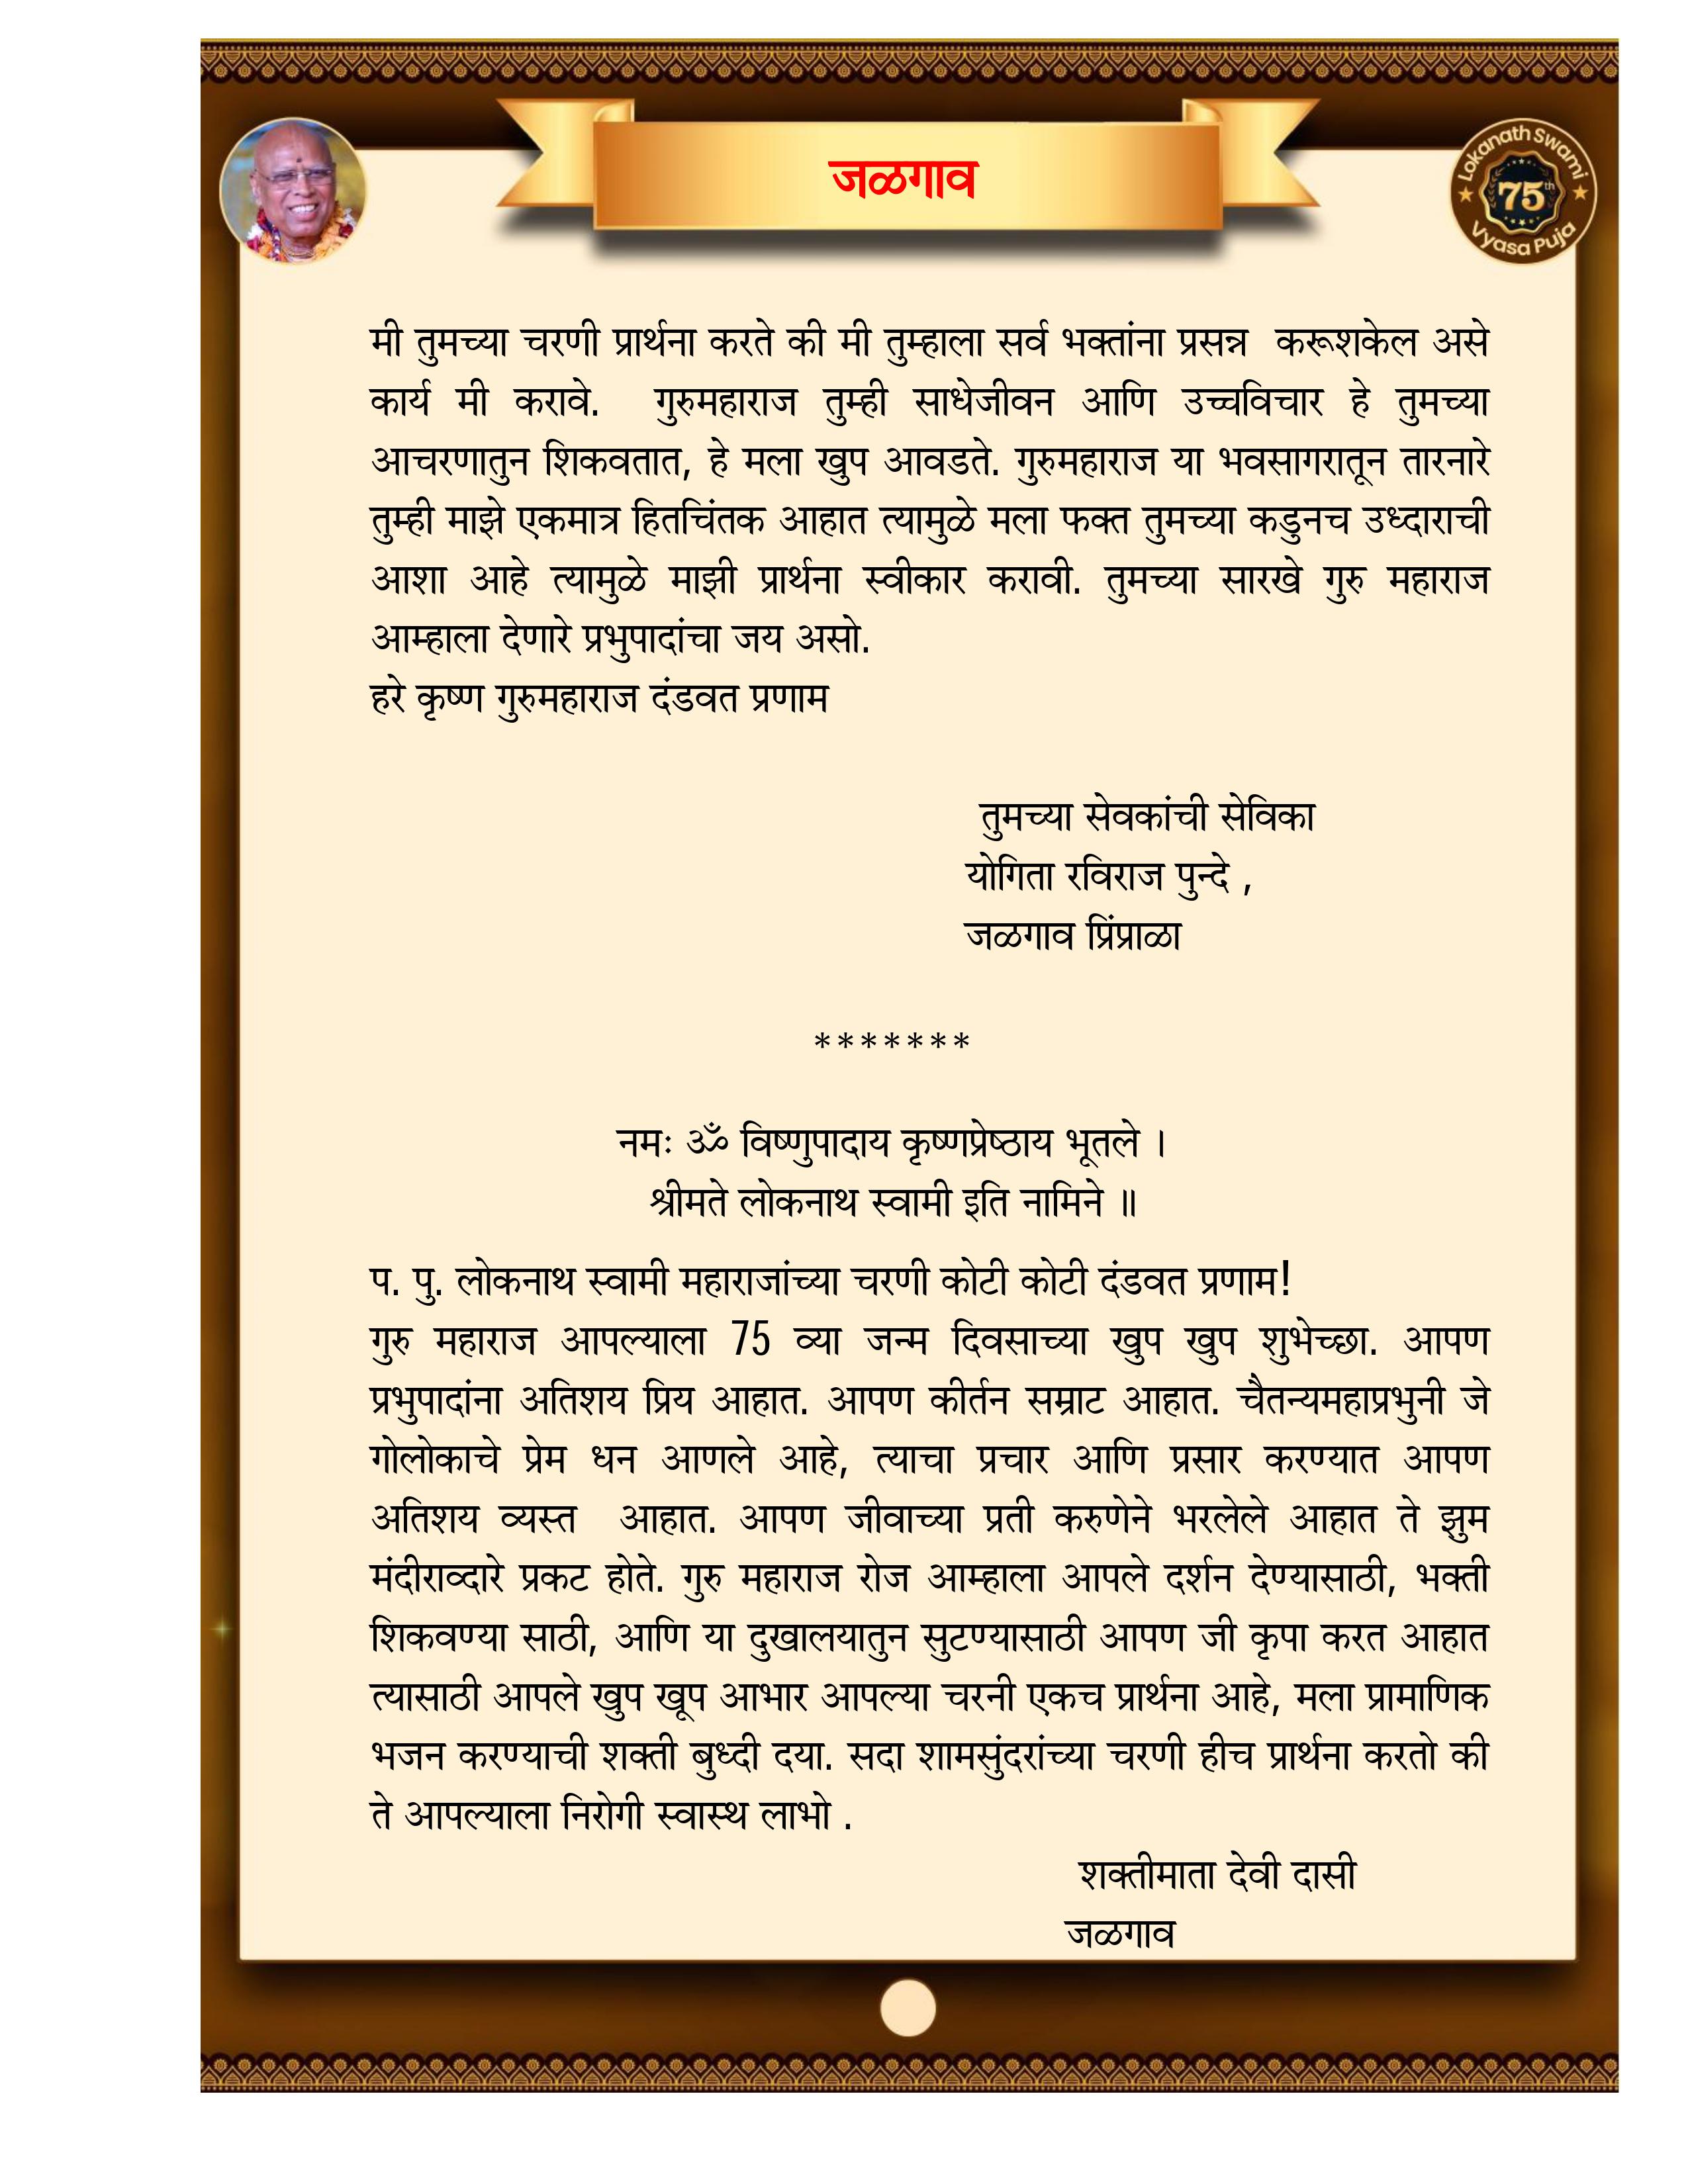 जळगाव
Lokanath Swami
75th
Vyasa Puja
मी तुमच्या चरणी प्रार्थना करते की मी तुम्हाला सर्व भक्तांना प्रसन्न  करूशकेल असे
कार्य मी करावे.  गुरुमहाराज तुम्ही साधेजीवन आणि उच्चविचार हे तुमच्या
आचरणातुन शिकवतात, हे मला खुप आवडते. गुरुमहाराज या भवसागरातून तारनारे
तुम्ही माझे एकमात्र हितचिंतक आहात त्यामुळे मला फक्त तुमच्या कडुनच उध्दाराची
आशा आहे त्यामुळे माझी प्रार्थना स्वीकार करावी. तुमच्या सारखे गुरु महाराज
आम्हाला देणारे प्रभुपादांचा जय असो.
हरे कृष्ण गुरुमहाराज दंडवत प्रणाम
तुमच्या सेवकांची सेविका
योगिता रविराज पुन्दे ,
जळगाव प्रिंप्राळा
*******
नमः ॐ विष्णुपादाय कृष्णप्रेष्ठाय भूतले ।
श्रीमते लोकनाथ स्वामी इति नामिने ॥
प. पु. लोकनाथ स्वामी महाराजांच्या चरणी कोटी कोटी दंडवत प्रणाम!
गुरु महाराज आपल्याला 75 व्या जन्म दिवसाच्या खुप खुप शुभेच्छा. आपण
प्रभुपादांना अतिशय प्रिय आहात. आपण कीर्तन सम्राट आहात. चैतन्यमहाप्रभुनी जे
गोलोकाचे प्रेम धन आणले आहे, त्याचा प्रचार आणि प्रसार करण्यात आपण
अतिशय व्यस्त  आहात. आपण जीवाच्या प्रती करुणेने भरलेले आहात ते झुम
मंदीराव्दारे प्रकट होते. गुरु महाराज रोज आम्हाला आपले दर्शन देण्यासाठी, भक्ती
शिकवण्या साठी, आणि या दुखालयातुन सुटण्यासाठी आपण जी कृपा करत आहात
त्यासाठी आपले खुप खूप आभार आपल्या चरनी एकच प्रार्थना आहे, मला प्रामाणिक
भजन करण्याची शक्ती बुध्दी दया. सदा शामसुंदरांच्या चरणी हीच प्रार्थना करतो की
ते आपल्याला निरोगी स्वास्थ लाभो .
शक्तीमाता देवी दासी
जळगाव